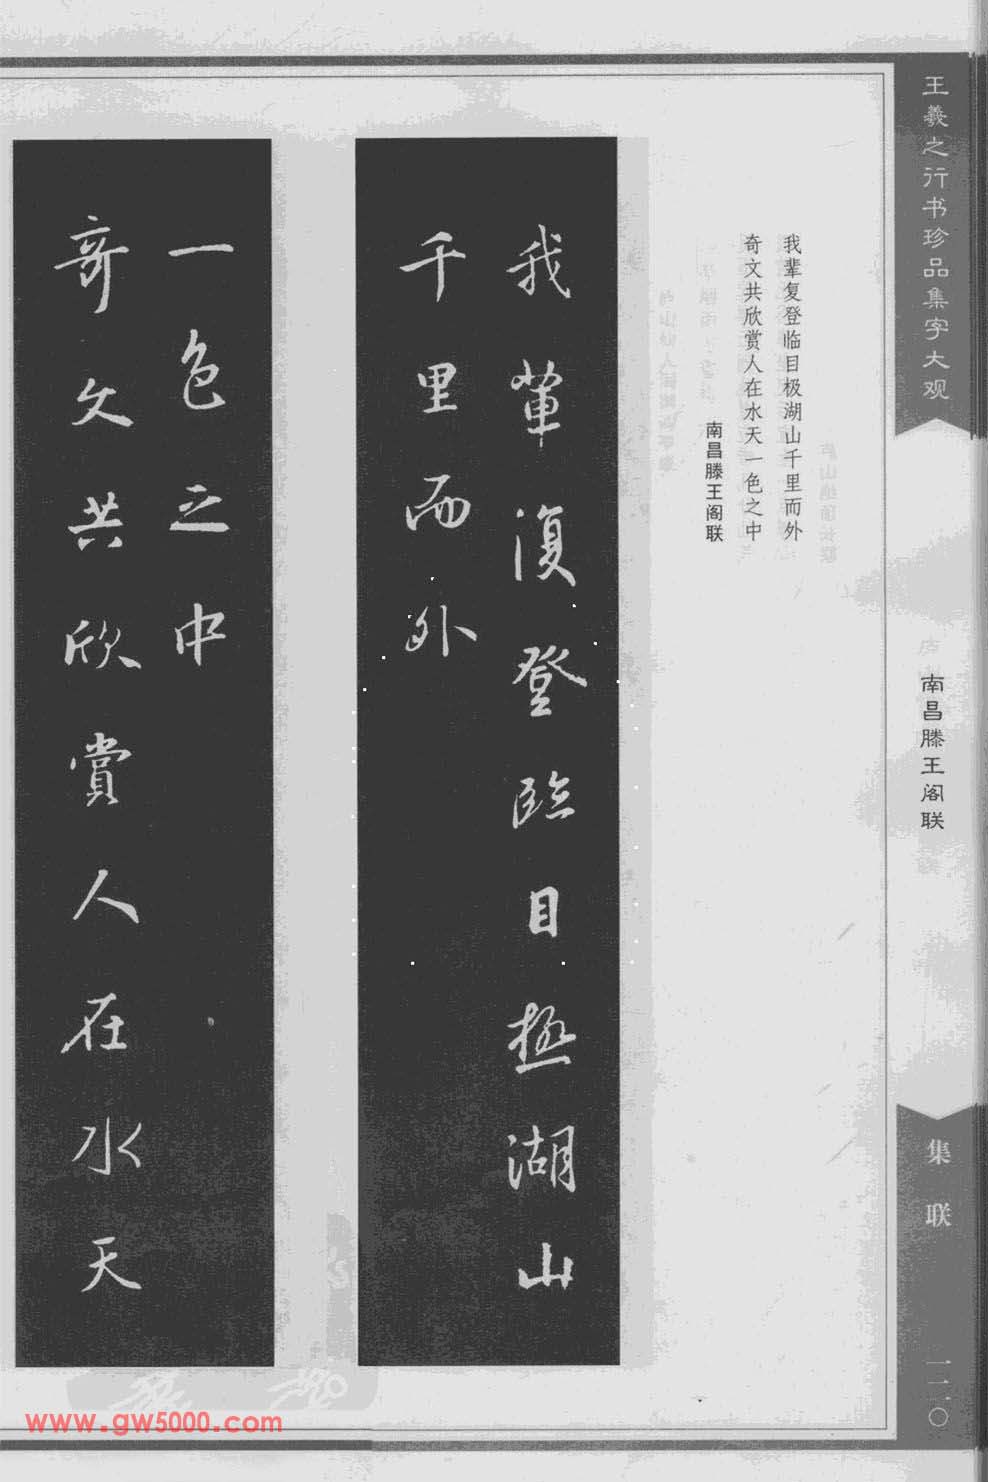 王羲之行书珍品集字大观
南昌滕王阁联
集联
一二〇
我辈复登临目极湖山千里而外
奇文共欣赏人在水天一色之中
南昌滕王阁联
我輩復登臨目極湖山
千里而外
奇文共欣賞人在水天
一色之中
www.gw5000.com